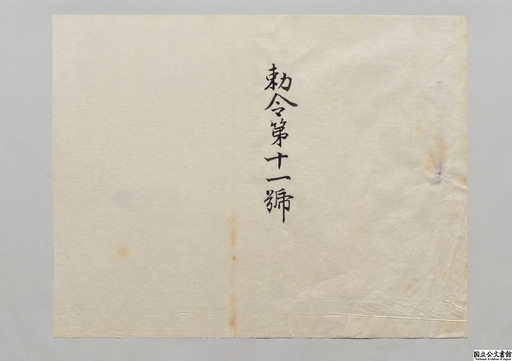 勅令第十一號
国立公文書館
National Archives of Japan